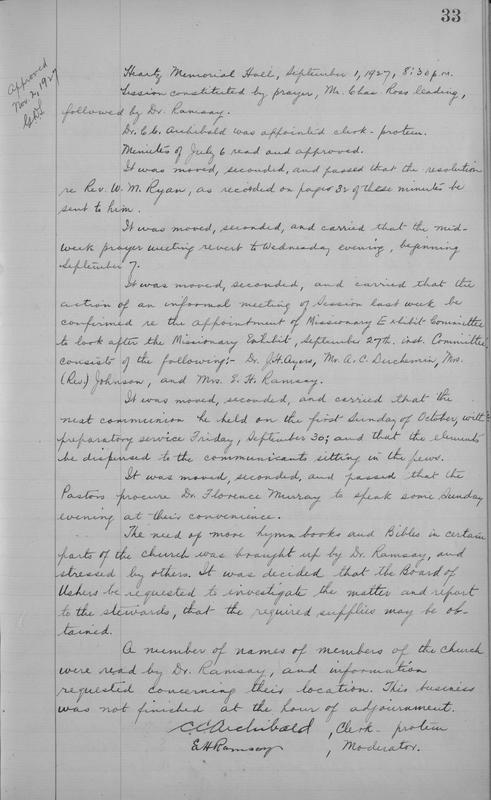 33
Approved
Nov. 2, 1927
Heartz Memorial Hall, September 1, 1927, 8:30 p.m.
Session constituted by prayer, Mr. Chas. Ross leading,
followed by Dr. Ramsay.
Dr. C.C. Archibald was appointed clerk-protem.
Minutes of July 6 read and approved.
It was moved, seconded, and passed that the resolution
re Rev. W. M. Ryan, as recorded on pages 32 of these minutes be
sent to him.
It was moved, seconded, and carried that the mid-
week prayer meeting revert to Wednesday evening, beginning
September 7.
It was moved, seconded, and carried that the
action of an informal meeting of Session last week be
confirmed re the appointment of Missionary Exhibit Committee
to look after the Missionary Exhibit, September 27th. inst. Committee
consists of the following:- Dr. J.H. Ayers, Mr. A. C. Duchemin, Mrs.
(Rev.) Johnson, and Mrs. E. H. Ramsay.
It was moved, seconded, and carried that the
next communion be held on the first Sunday of October, with
preparatory service Friday, September 30; and that the elements
be dispensed to the communicants sitting in the pews.
It was moved, seconded, and passed that the
Pastors procure Dr. Florence Murray to speak some Sunday
evening at their convenience.
The need of more hymn books and Bibles in certain
parts of the church was brought up by Dr. Ramsay, and
stressed by others. It was decided that the Board of
Ushers be requested to investigate the matter and report
to the stewards, that the required supplies may be ob-
tained.
A number of names of members of the church
were read by Dr. Ramsay, and information
requested concerning their location. This business
was not finished at the hour of adjournment.
C.C. Archibald, Clerk-protem
E H Ramsay, Moderator.